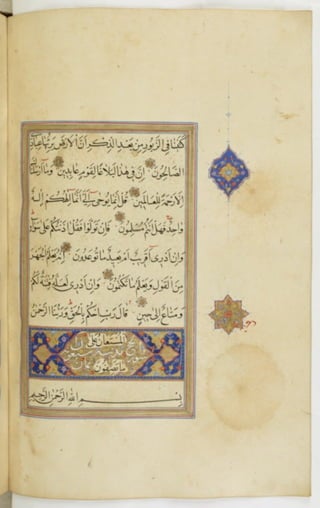 كتبنا في الزبور من بعد الذكر ان الارض يرثها عبادي
الصالحون ان في هذا لبلاغا لقوم عابدين وما ارسلناك
الا رحمة للعالمين قل انما يوحى الي انما الهكم اله
واحد فهل انتم مسلمون فان تولوا فقل اذنتكم على سواء
وان ادري اقريب ام بعيد ما توعدون انه يعلم الجهر
من القول ويعلم ما تكتمون وان ادري لعله فتنة لكم
ومتاع الى حين قال رب احكم بالحق وربنا الرحمن
المستعان على
ما تصفون
بسم الله الرحمن الرحيم